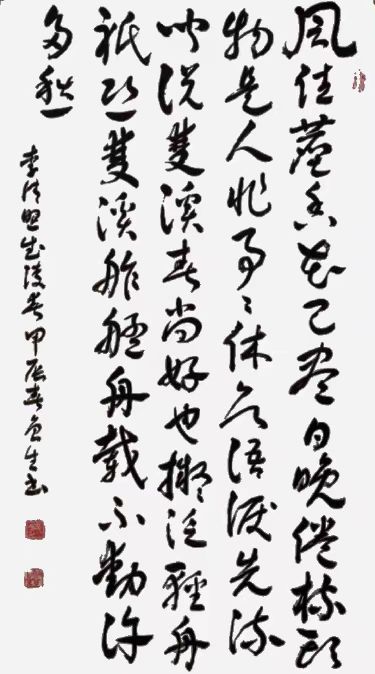 風住塵香花已盡日晚倦梳頭
物是人非事〻休欲語淚先流
聞説雙溪春尚好也擬泛輕舟
衹恐雙溪舴艋舟載不動許
多愁
李清照武陵春甲辰春書